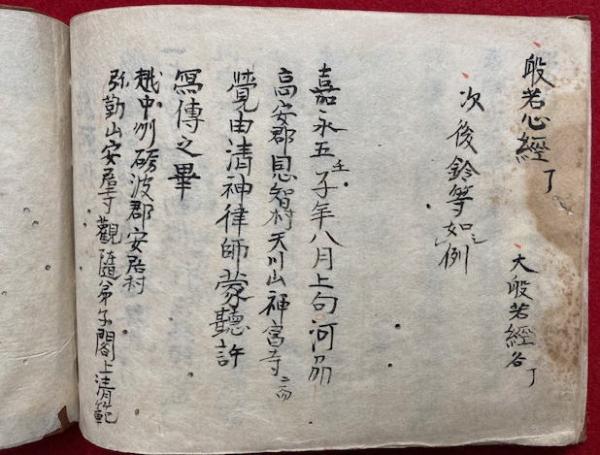 般若心經了　大般若經各了
次後鈴等如例
嘉永五壬子年八月上旬河刕
高安郡恩智村天川山神宮寺ニ而
覺由清神律師蒙聽許
寫傳之畢
越中州砺波郡安居村
弥勒山安居寺觀隨弟子閣上清範